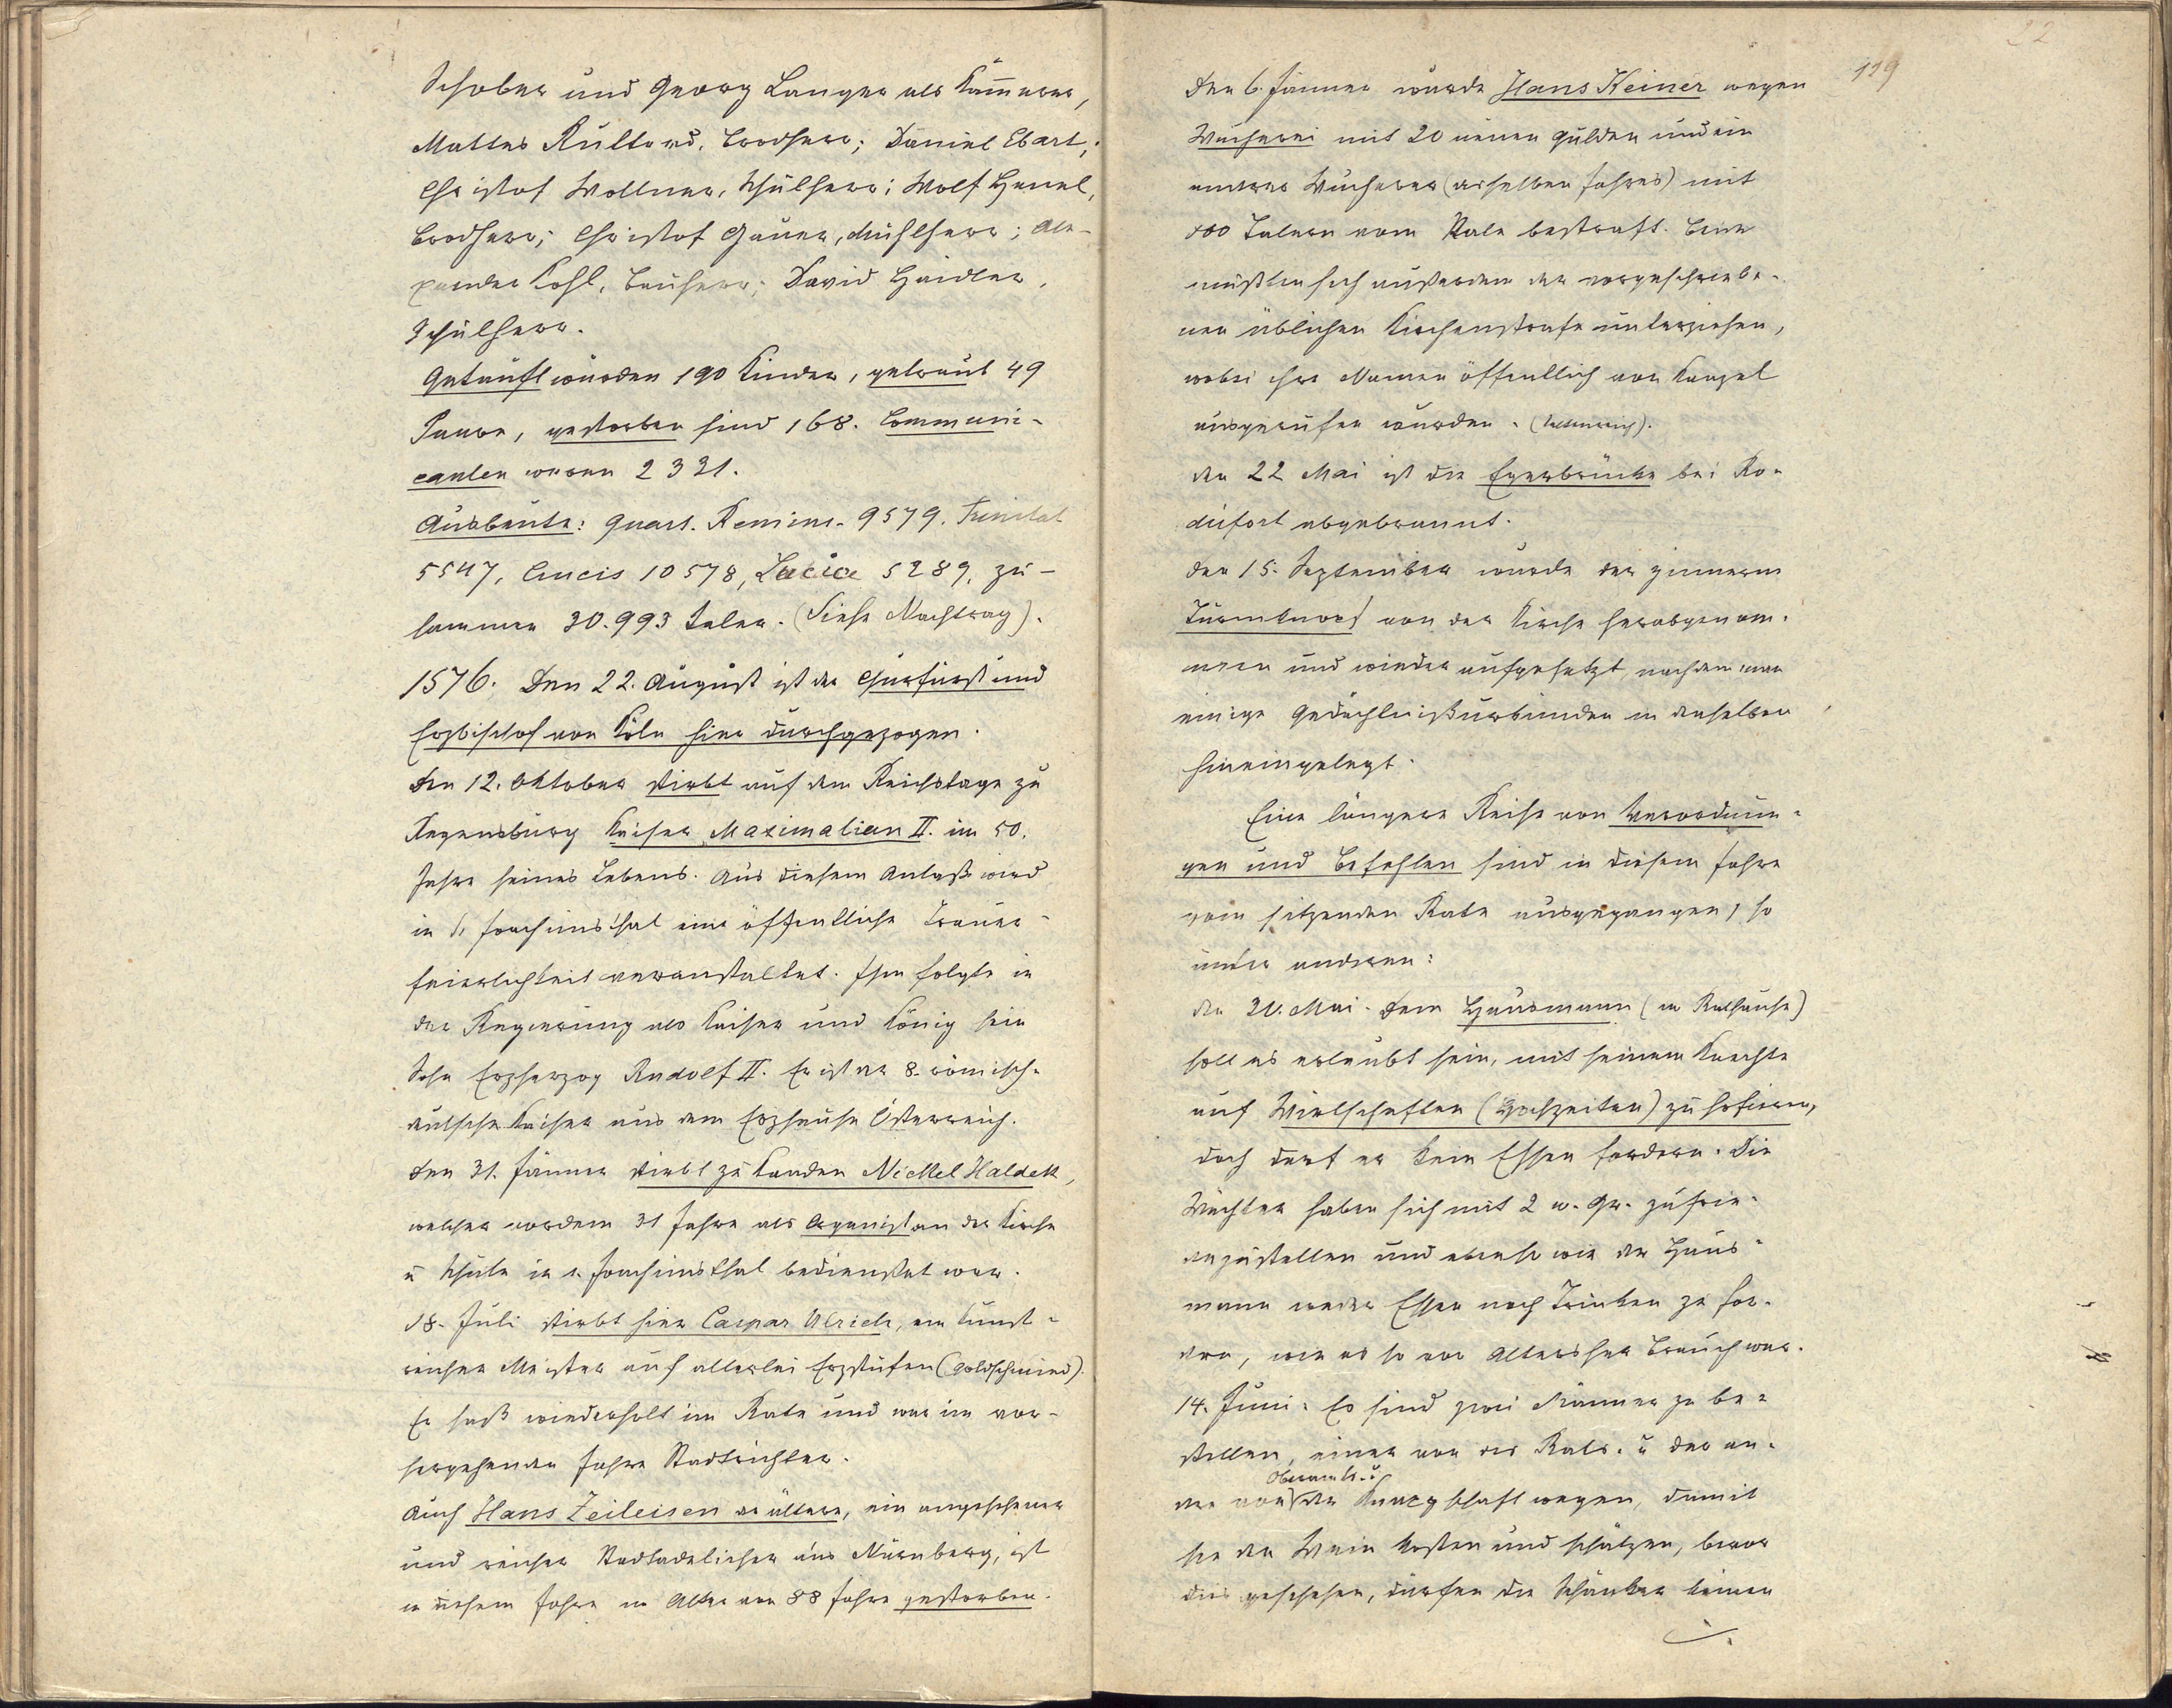 Schober und Georg Langer als Kämmerer,
Mattes Kulterd, Brodherr; Daniel Ebart;
Christof Wollner, Schulherr; Wolf Henel,
Brodherr; Christof Gauer, Mühlherr; Ale-
xander Kohl, Bauherr; David Haidler,
Schulherr.
Getauft wurden 190 Kinder, getraut 49
Paare, gestorben sind 168. Communi-
canten waren 2321.
Ausbeute: Quart. Reminis. 9579, Trinitat
5547, Crucis 10578, Lucia 5289, zu-
sammen 30.993 Taler. (Siehe Nachtrag).
1576. Den 22. August ist der Churfürst und
Erzbischof von Köln hier durchgezogen.
Den 12. Oktober stirbt auf dem Reichstage zu
Regensburg Kaiser Maximalian II. im 50.
Jahre seines Lebens. Aus diesem Anlaß wird
in St. Joachimsthal eine öffentliche Trauer-
feierlichkeit veranstaltet. Ihm folgte in
der Regierung als Kaiser und König sein
Sohn Erzherzog Rudolf II. Er ist der 8. römisch-
deutsche Kaiser aus dem Erzhause Österreich.
Den 31. Jänner stirbt zu Kaaden Nickel Haldek,
welcher vordem 31 Jahre als Organist an der Kirche
u Schule in s. Joachimsthal bedienstet war.
18. Juli stirbt hier Caspar Ulrich, ein kunst-
reicher Meister auf allerlei Erzstufen (Goldschmied).
Er saß wiederholt im Rate und war im vor-
hergehenden Jahre Stadtrichter.
Auch Hans Zeileisen der ältere, ein angesehener
und reicher Stadtadelicher aus Nürnberg, ist
in diesem Jahre im Alter von 88 Jahre gestorben.
119
22
Den 6. Jänner wurde Hans Keiner wegen
Wucherei mit 20 neuen Gulden und ein
anderer Wucherer (desselben Jahres) mit
100 Talern vom Rate bestraft. Beide
mußten sich außerdem der vorgeschriebe-
nen üblichen Kirchenstrafe unterziehen,
wobei ihre Namen öffentlich von Kanzel
ausgerufen wurden.
Den 22 Mai ist die Egerbrücke bei Ro-
disfort abgebrannt.
Den 15. September wurde der zinnerne
Turmknopf von der Kirche herabgenom-
men und wieder aufgesetzt, nachdem man
einige Gedächtnißurkunden in denselben
hineingelegt.
Eine längere Reihe von Verordnun-
gen und Befehlen sind in diesem Jahre
vom sitzenden Rate ausgegangen, so
unter anderen:
Den 31. Mai. Dem Hausmann (im Rathause)
soll es erlaubt sein, mit seinem Knechte
auf Wirtschaften (Hochzeiten) zu hofieren,
doch darf er kein Essen fordern. Die
Wächter haben sich mit 2 w. Gr. zufrie-
denzustellen und ebenso wie der Haus-
mann weder Essen noch Trinken zu for-
dern, wie es so von Altersher Brauch war.
14. Juni. Es sind zwei Männer zu be-
stellen, einer von des Rats- u der an-
Oberamts- u
dere von der Knappschaft wegen, damit
sie den Wein kosten und schätzen, bevor
dies geschehen, dürfen die Schänker keinen